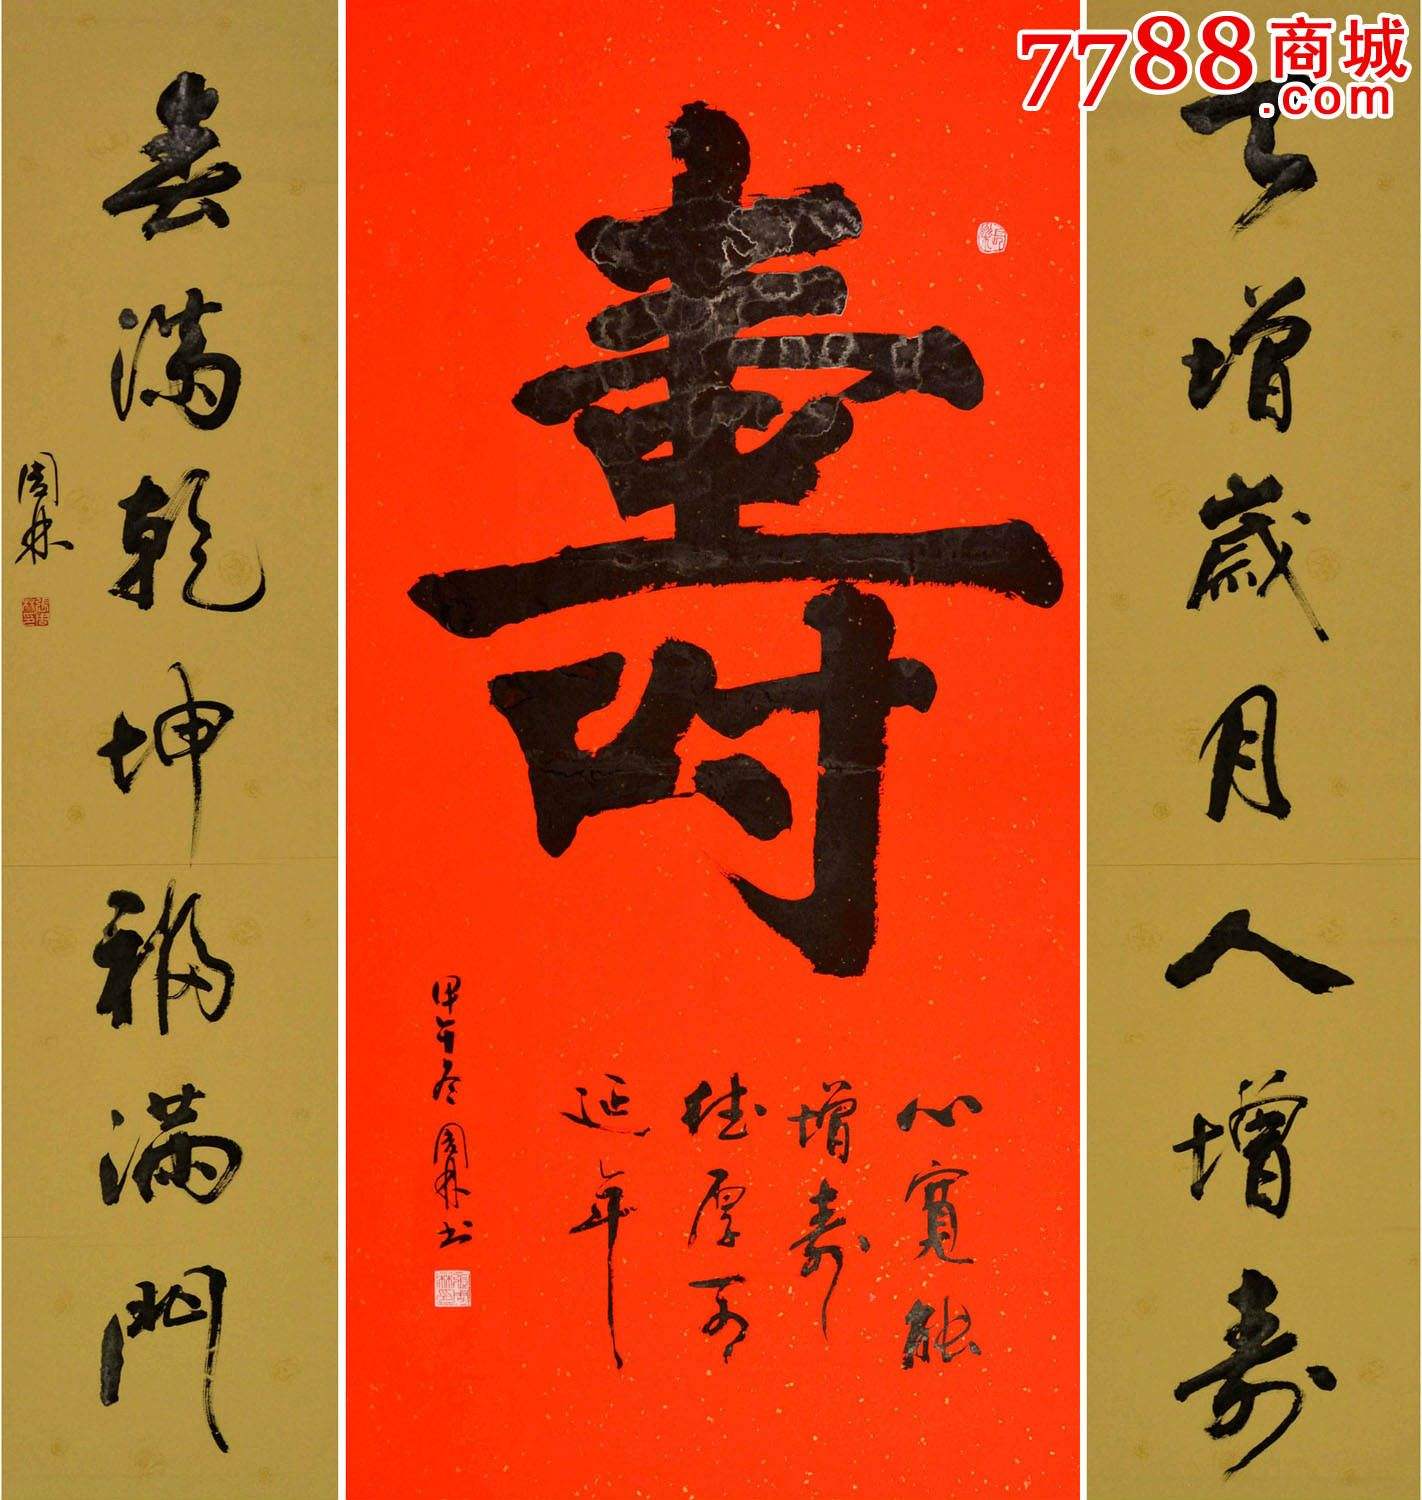 7788商城
.com
天增歲月人增壽
壽
心寬能
增壽
德厚可
延年
甲午冬周林书
春滿乾坤福滿門
周林